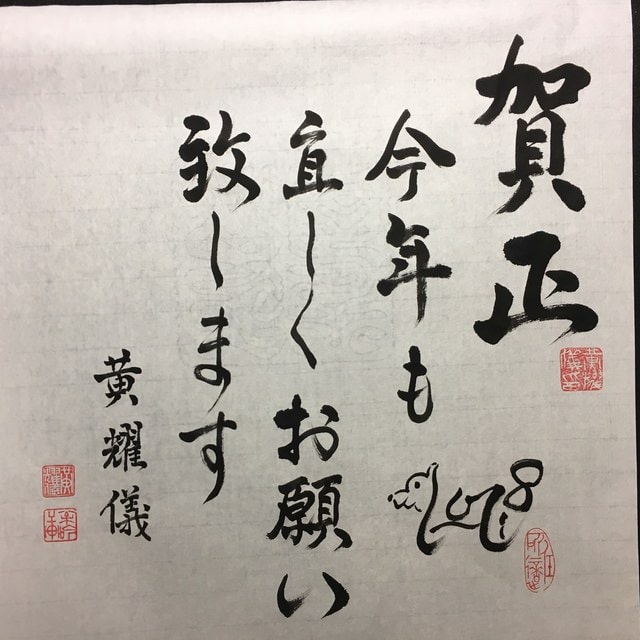 賀正
今年も
宜しくお願い
致します
黄耀儀